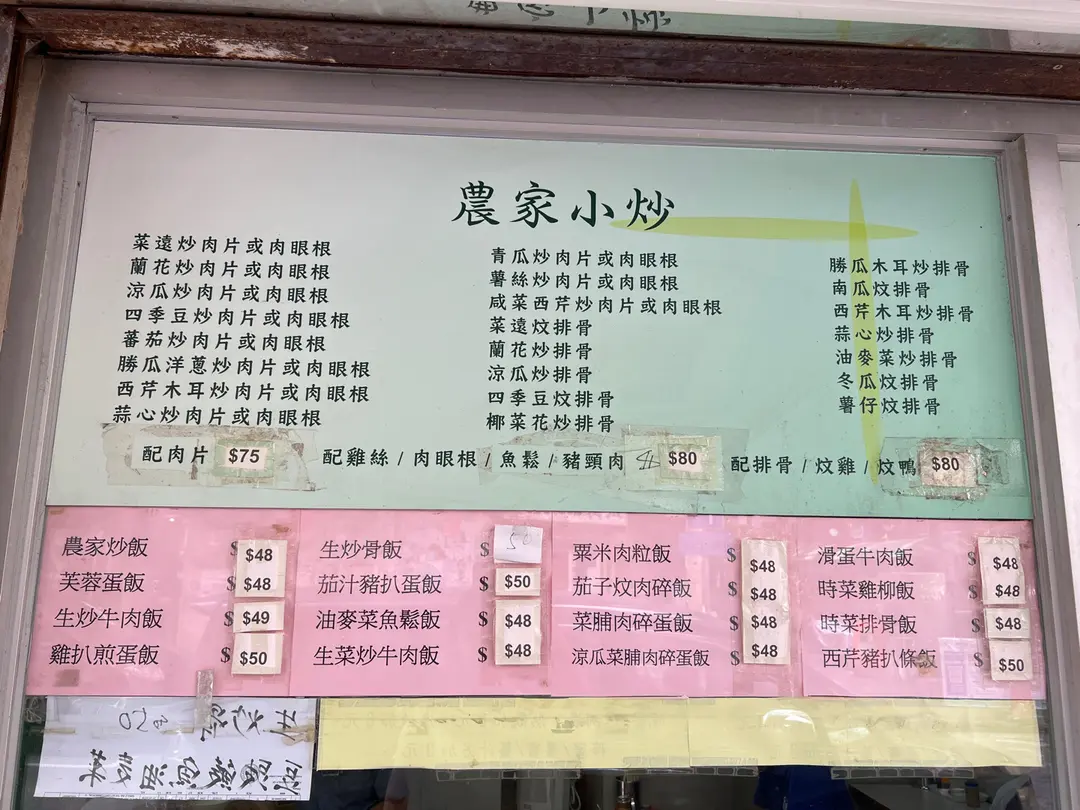 農家小炒
菜遠炒肉片或肉眼根
蘭花炒肉片或肉眼根
涼瓜炒肉片或肉眼根
四季豆炒肉片或肉眼根
蕃茄炒肉片或肉眼根
勝瓜洋蔥炒肉片或肉眼根
西芹木耳炒肉片或肉眼根
蒜心炒肉片或肉眼根
青瓜炒肉片或肉眼根
薯絲炒肉片或肉眼根
咸菜西芹炒肉片或肉眼根
菜遠炆排骨
蘭花炒排骨
涼瓜炒排骨
四季豆炆排骨
椰菜花炒排骨
勝瓜木耳炒排骨
南瓜炆排骨
西芹木耳炒排骨
蒜心炒排骨
油麥菜炒排骨
冬瓜炆排骨
薯仔炆排骨
配肉片 $75
配雞絲/肉眼根/魚鬆/豬頸肉 $80
配排骨/炆雞/炆鴨 $80
農家炒飯 $48
芙蓉蛋飯 $48
生炒牛肉飯 $49
雞扒煎蛋飯 $50
生炒骨飯 $ 50
茄汁豬扒蛋飯 $50
油麥菜魚鬆飯 $48
生菜炒牛肉飯 $48
粟米肉粒飯 $48
茄子炆肉碎飯 $48
菜脯肉碎蛋飯 $48
涼瓜菜脯肉碎蛋飯 $48
滑蛋牛肉飯 $48
時菜雞柳飯 $48
時菜排骨飯 $48
西芹豬扒條飯 $50